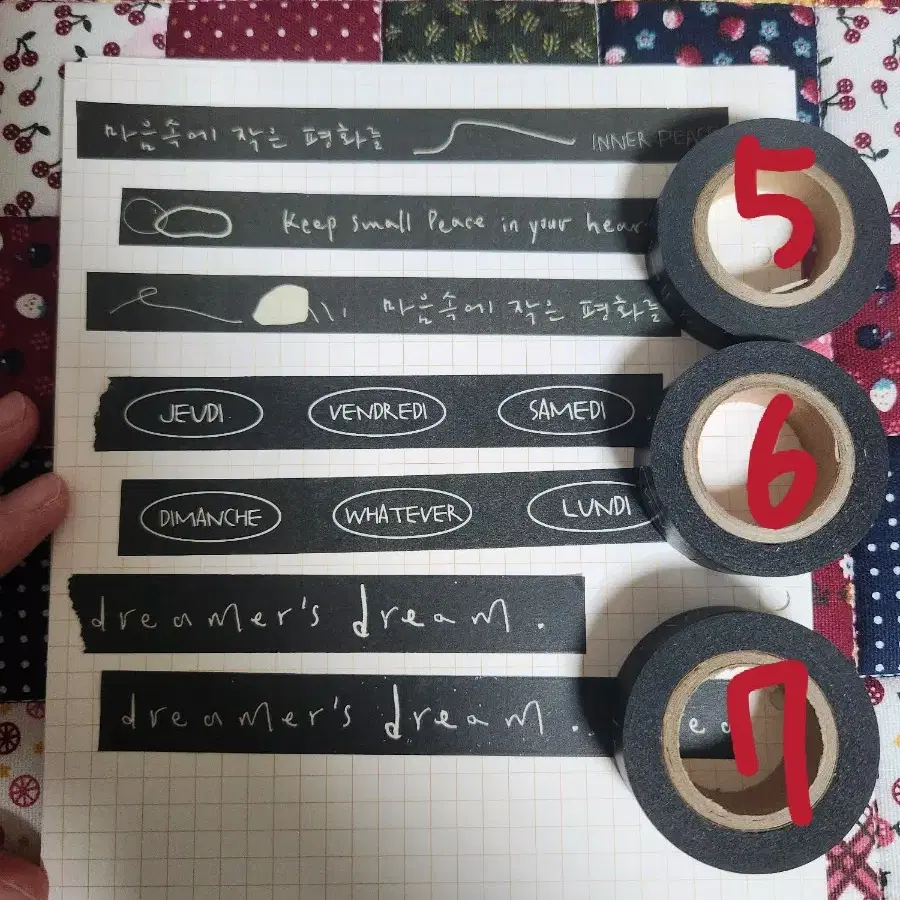 마음속에 작은 평화를 INNER PEACE
5
Keep small Peace in your hear
마음속에 작은 평화를
JEUDI VENDREDI SAMEDI
6
DIMANCHE WHATEVER LUNDI
dreamer's dream.
dreamer's dream..
7